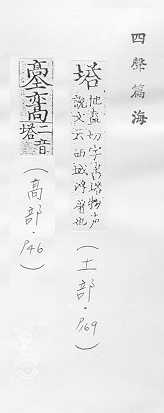 四聲篇海
塔 他盍切字書塔物声
說文云西域浮屠也
(土部·P.169)
二音
塔
(高部·P.46)